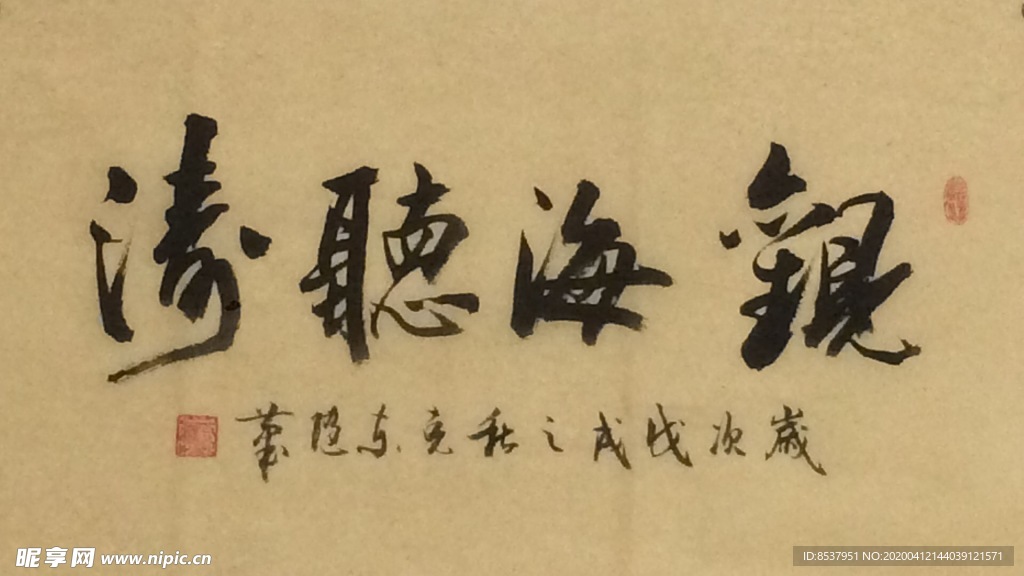 觀海聽濤
歲次戊戌之秋亮東隐筆
昵享网 www.nipic.cn
ID:8537951 NO:20200412144039121571